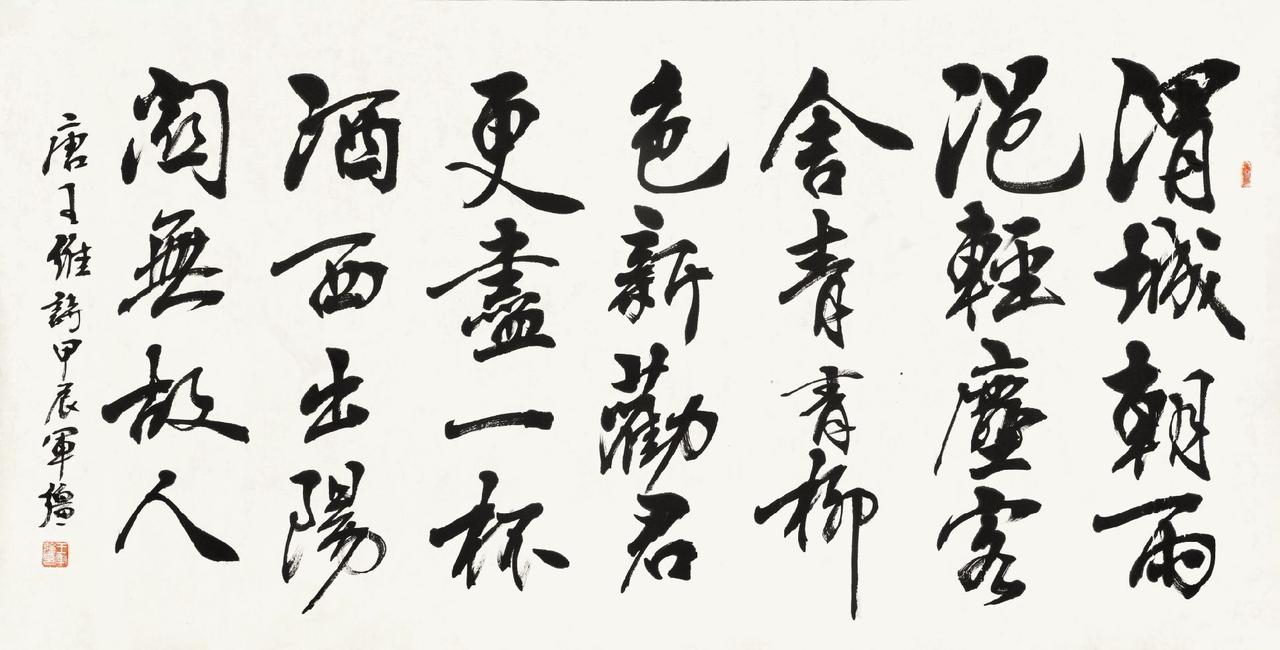 渭城朝雨
浥輕塵客
舍青青柳
色新勸君
更盡一杯
酒西出陽
關無故人
唐王維詩甲辰軍